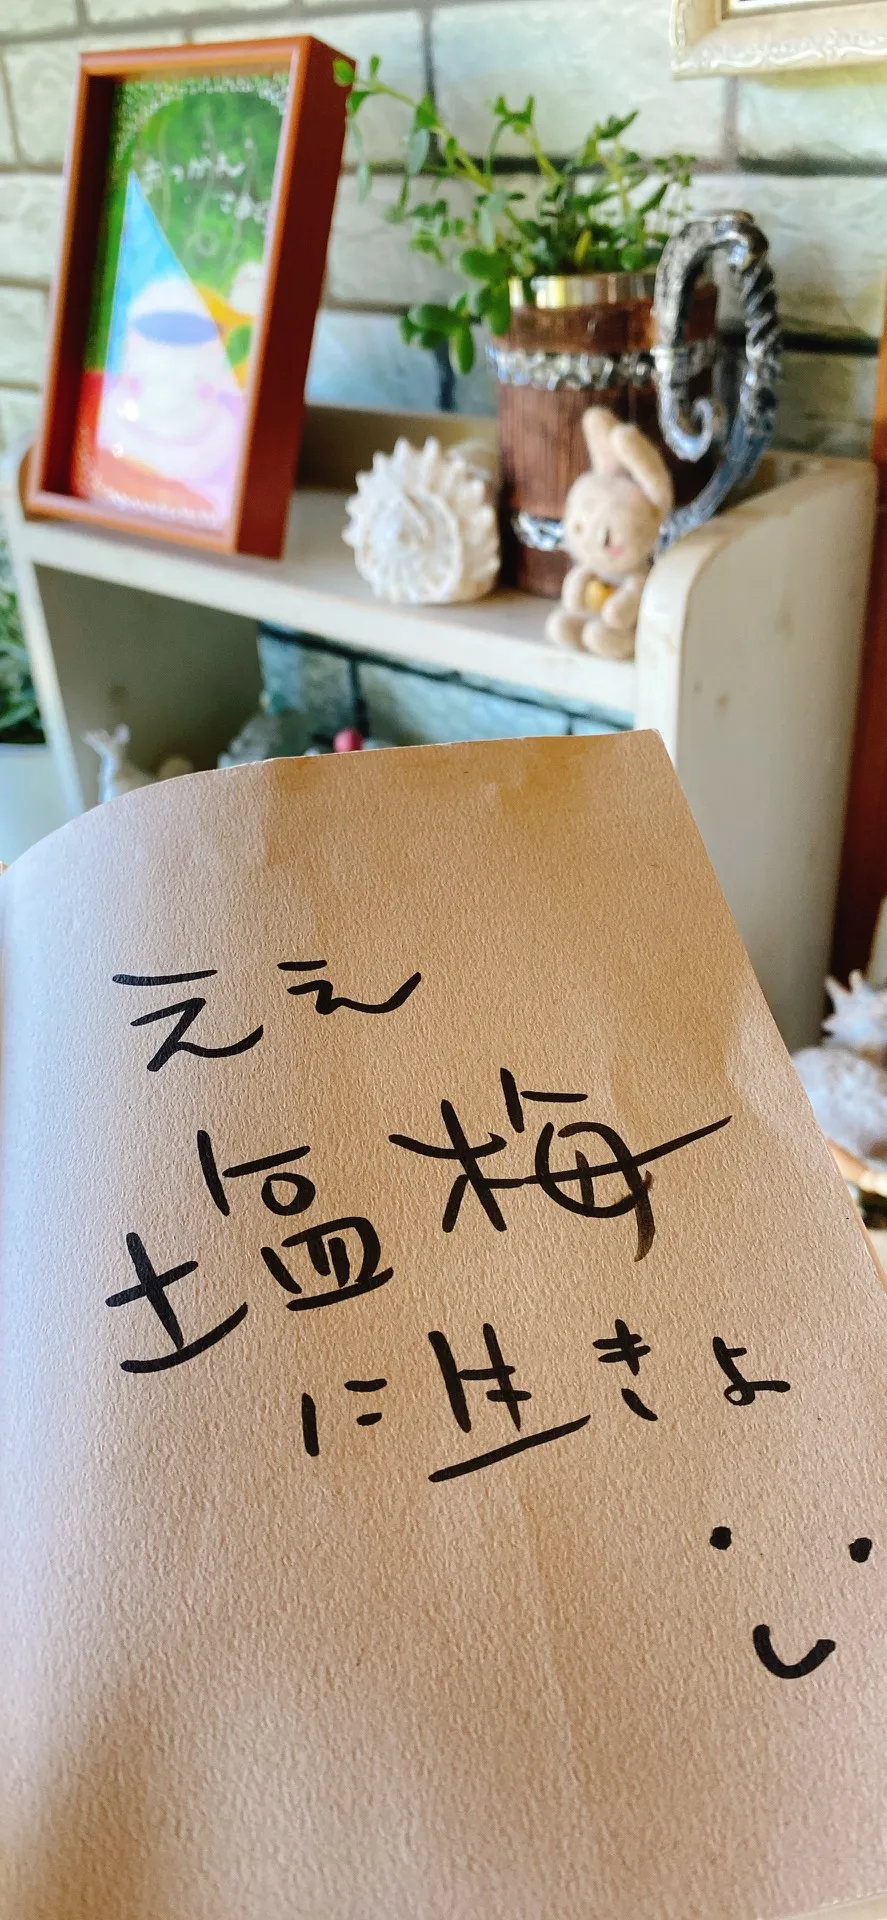 ええ
塩梅
に生きよ